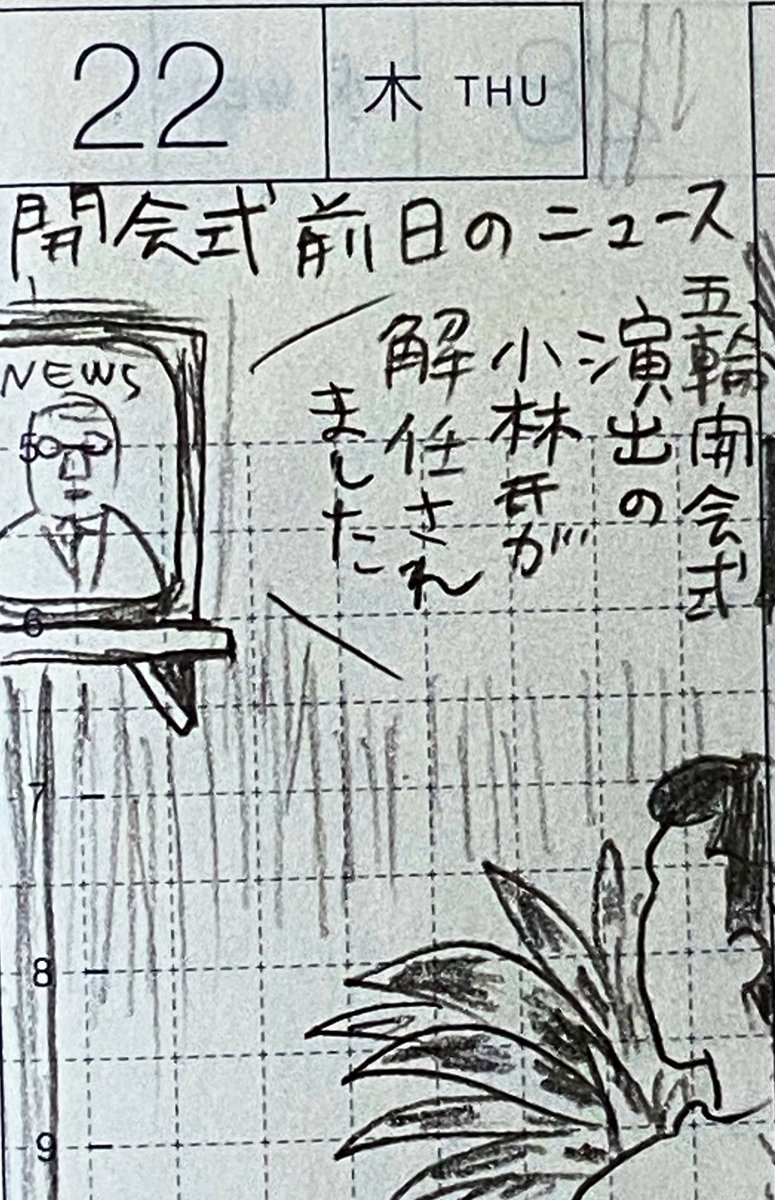 22
木 THU
開会式前日のニュース
五輪開会式
演出の
小林氏が
解任され
ました
NEWS
5
6
7
8
9